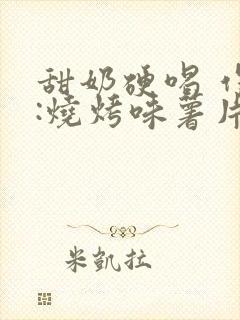 甜奶硬唱
:燒烤味薯片
米凱拉